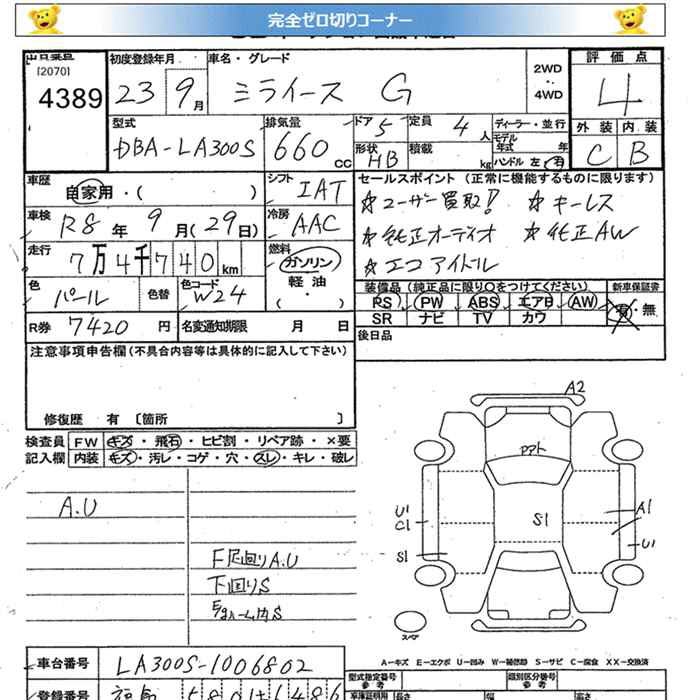 完全ゼロ切りコーナー
出品票
[2070]
4389
初度登録年月
23 9月
車名・グレード
ミライース G
2WD
4WD
評価点
4
外装 内装
C B
型式
DBA-LA300S
排気量
660 CC
ドア 5
形状 HB
定員 4 人
積載 kg
ディーラー・並行
モデル年式 年
ハンドル 左・右
車歴
自家用・( )
シフト
IAT
セールスポイント (正常に機能するものに限ります)
☆ユーザー買取! ☆キーレス
☆純正オーディオ ☆純正AW
☆エコアイドル
車検
R8年 9月(29日)
冷房
AAC
走行
7万4千740km
燃料
ガソリン
軽油
( ・ )
色
パール
色替
色コード
W24
装備品 (純正品に限り○をつけてください)
新車保証書
PS PW ABS エアB AW
有・無
SR ナビ TV カワ
R券 7420円
名変通知期限 月 日
後日品
注意事項申告欄(不具合内容等は具体的に記入して下さい)
修復歴 有 〔箇所 〕
検査員
記入欄
FW キズ・飛石・ヒビ割・リペア跡・×要
内装 キズ・汚レ・コゲ・穴・スレ・キレ・破レ
A.U
F足廻りA.U
下廻りS
E/gルーム内S
A2
S1
U1
C1
S1
A1
U1
スペア
A-キズ E-エクボ U-凹み W-補修跡 S-サビ C-腐食 XX-交換済
車台番号
LA300S-1006802
登録番号
福島 580
型式指定番号
参考
類別区分番号
参考
車庫証明用
長さ
幅
高さ